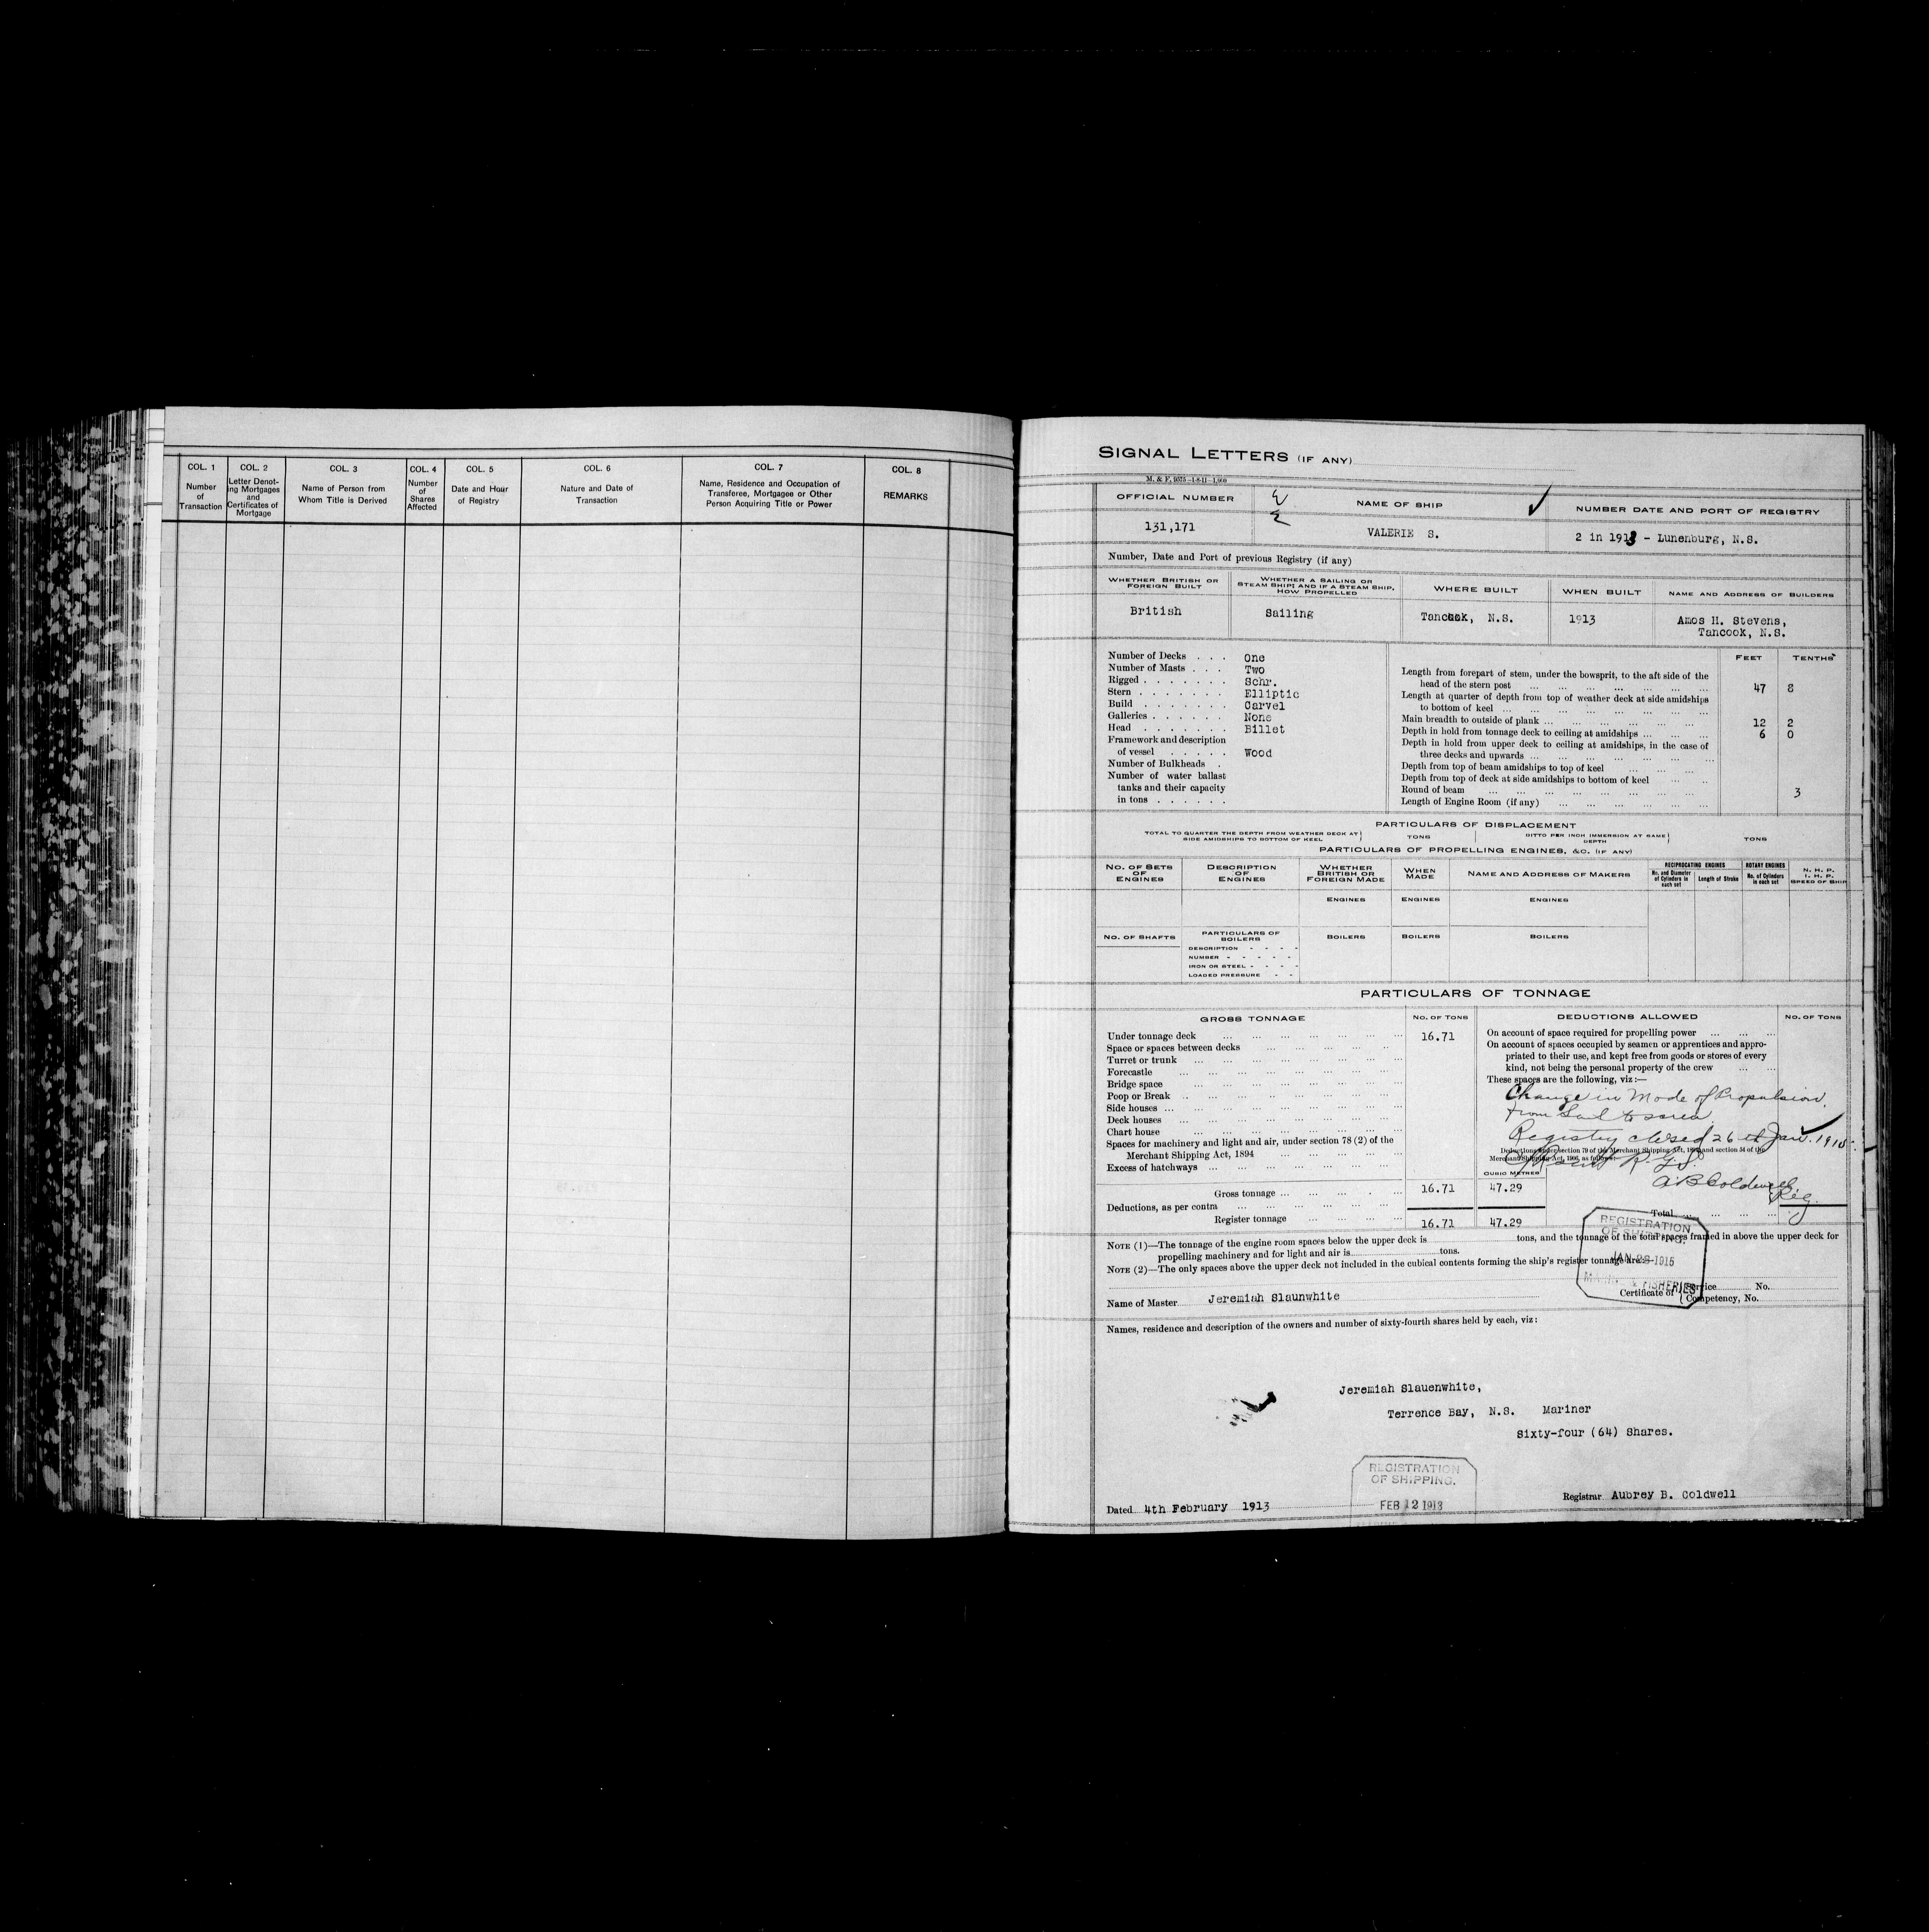 COL. 1
Number
of
Transaction
COL. 2
Letter Denot-
ing Mortgages
and
Certificates of
Mortgage
COL. 3
Name of Person from
Whom Title is Derived
COL. 4
Number
of
Shares
Affected
COL. 5
Date and Hour
of Registry
COL. 6
Nature and Date of
Transaction
COL. 7
Name, Residence and Occupation of
Transferee, Mortgagee or Other
Person Acquiring Title or Power
COL. 8
REMARKS
SIGNAL LETTERS (IF ANY)
M. & F. 9575—1-8-11—1,000
OFFICIAL NUMBER
NAME OF SHIP
NUMBER DATE AND PORT OF REGISTRY
131,171
VALERIE S.
2 in 1913 - Lunenburg, N.S.
Number, Date and Port of previous Registry (if any)
WHETHER BRITISH OR
FOREIGN BUILT
WHETHER A SAILING OR
STEAM SHIP; AND IF A STEAM SHIP,
HOW PROPELLED
WHERE BUILT
WHEN BUILT
NAME AND ADDRESS OF BUILDERS
British
Sailing
Tancook, N.S.
1913
Amos H. Stevens,
Tancook, N.S.
FEET TENTHS
Number of Decks . . . One
Number of Masts . . . Two
Rigged . . . . . . . Schr.
Stern . . . . . . . Elliptic
Build . . . . . . . Carvel
Galleries . . . . . . None
Head . . . . . . . Billet
Framework and description
of vessel . . . . . Wood
Number of Bulkheads .
Number of water ballast
tanks and their capacity
in tons . . . . . .
Length from forepart of stem, under the bowsprit, to the aft side of the
head of the stern post ... 47 8
Length at quarter of depth from top of weather deck at side amidships
to bottom of keel ...
Main breadth to outside of plank ... 12 2
Depth in hold from tonnage deck to ceiling at amidships ... 6 0
Depth in hold from upper deck to ceiling at amidships, in the case of
three decks and upwards ...
Depth from top of beam amidships to top of keel ...
Depth from top of deck at side amidships to bottom of keel ...
Round of beam ... 3
Length of Engine Room (if any) ...
PARTICULARS OF DISPLACEMENT
TOTAL TO QUARTER THE DEPTH FROM WEATHER DECK AT
SIDE AMIDSHIPS TO BOTTOM OF KEEL
TONS
DITTO PER INCH IMMERSION AT SAME
DEPTH
TONS
PARTICULARS OF PROPELLING ENGINES, &C. (IF ANY)
NO. OF SETS
OF
ENGINES
DESCRIPTION
OF
ENGINES
WHETHER
BRITISH OR
FOREIGN MADE
WHEN
MADE
NAME AND ADDRESS OF MAKERS
RECIPROCATING ENGINES
No. and Diameter
of Cylinders in
each set
Length of Stroke
ROTARY ENGINES
No. of Cylinders
in each set
N. H. P.
I. H. P.
SPEED OF SHIP
ENGINES ENGINES ENGINES
NO. OF SHAFTS
PARTICULARS OF
BOILERS
BOILERS BOILERS BOILERS
DESCRIPTION - - - -
NUMBER - - - - -
IRON OR STEEL - - - -
LOADED PRESSURE - -
PARTICULARS OF TONNAGE
GROSS TONNAGE
NO. OF TONS
DEDUCTIONS ALLOWED
NO. OF TONS
Under tonnage deck ... 16.71
Space or spaces between decks ...
Turret or trunk ...
Forecastle ...
Bridge space ...
Poop or Break ...
Side houses ...
Deck houses ...
Chart house ...
Spaces for machinery and light and air, under section 78 (2) of the
Merchant Shipping Act, 1894 ...
Excess of hatchways ...
On account of space required for propelling power ...
On account of spaces occupied by seamen or apprentices and appro-
priated to their use, and kept free from goods or stores of every
kind, not being the personal property of the crew ...
These spaces are the following, viz:—
Change in Mode of Propulsion
from Sail to screw
Registry closed 26th Jan. 1915.
Deductions under section 79 of the Merchant Shipping Act, 1894 and section 54 of the
Merchant Shipping Act, 1906, as follows:
A B Coldwell
Reg.
CUBIC METRES
Gross tonnage ... 16.71 47.29
Deductions, as per contra ...
Register tonnage ... 16.71 47.29
Total ...
NOTE (1)—The tonnage of the engine room spaces below the upper deck is tons, and the tonnage of the total spaces framed in above the upper deck for
propelling machinery and for light and air is tons.
NOTE (2)—The only spaces above the upper deck not included in the cubical contents forming the ship's register tonnage are:—
REGISTRATION
OF SHIPPING.
JAN 28 1915
MARINE & FISHERIES
Name of Master Jeremiah Slaunwhite
Certificate of
Service No.
Competency, No.
Names, residence and description of the owners and number of sixty-fourth shares held by each, viz:
Jeremiah Slauenwhite,
Terrence Bay, N.S. Mariner
Sixty-four (64) Shares.
REGISTRATION
OF SHIPPING.
FEB 12 1913
Dated 4th February 1913
Registrar Aubrey B. Coldwell